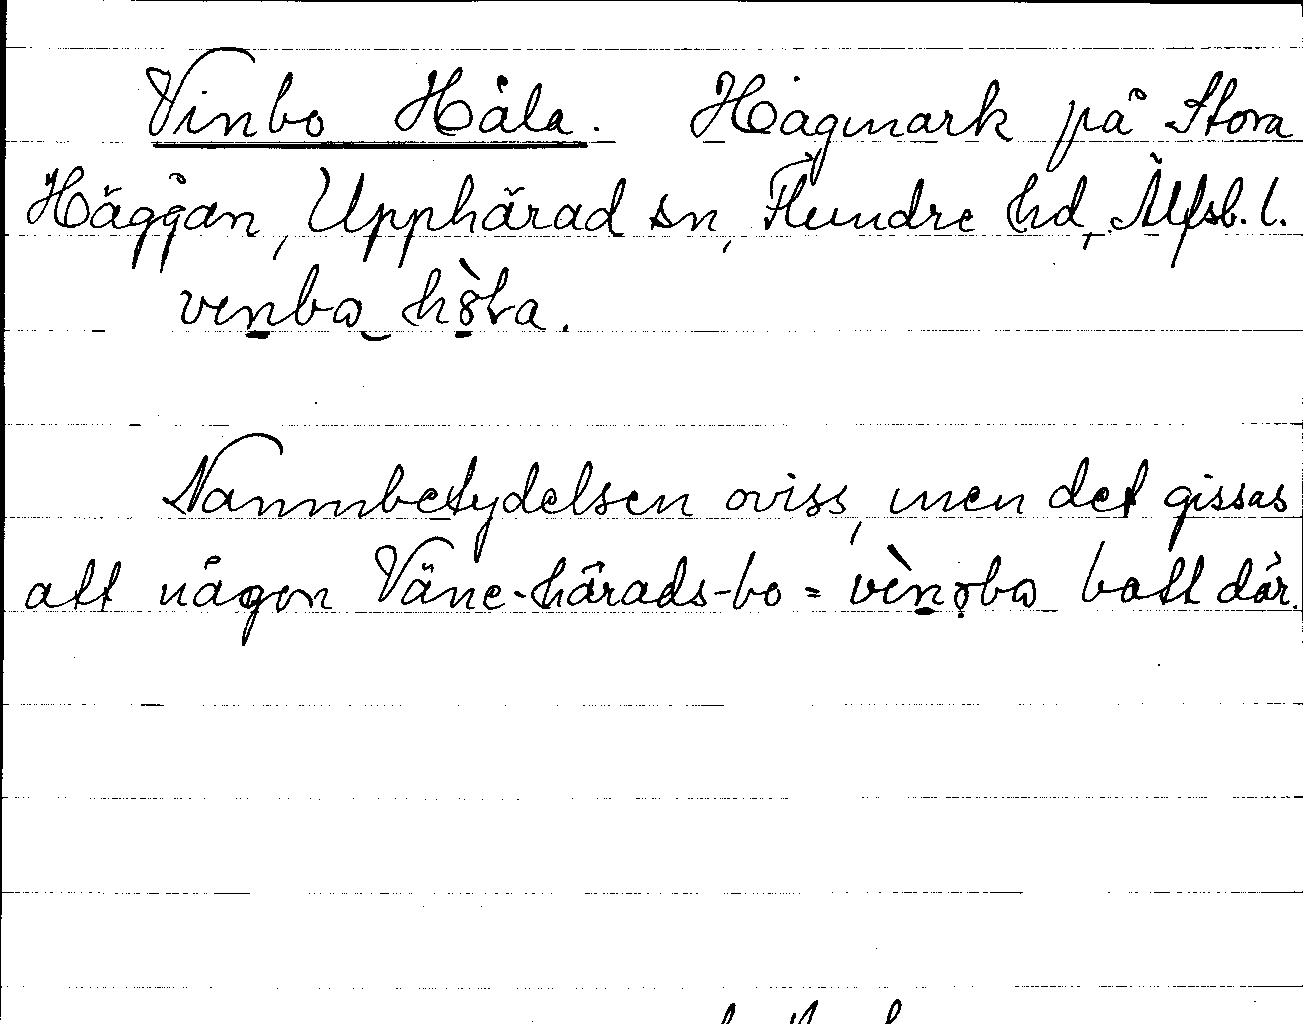 Vinbo Håla. Hagmark på Stora
Häggån, Upphärad sn, Flundre hd, Älfsb. l.
venbω hòla.
Namnbetydelsen oviss, men det gissas
att någon Väne-härads-bo = vènəbω bott där.